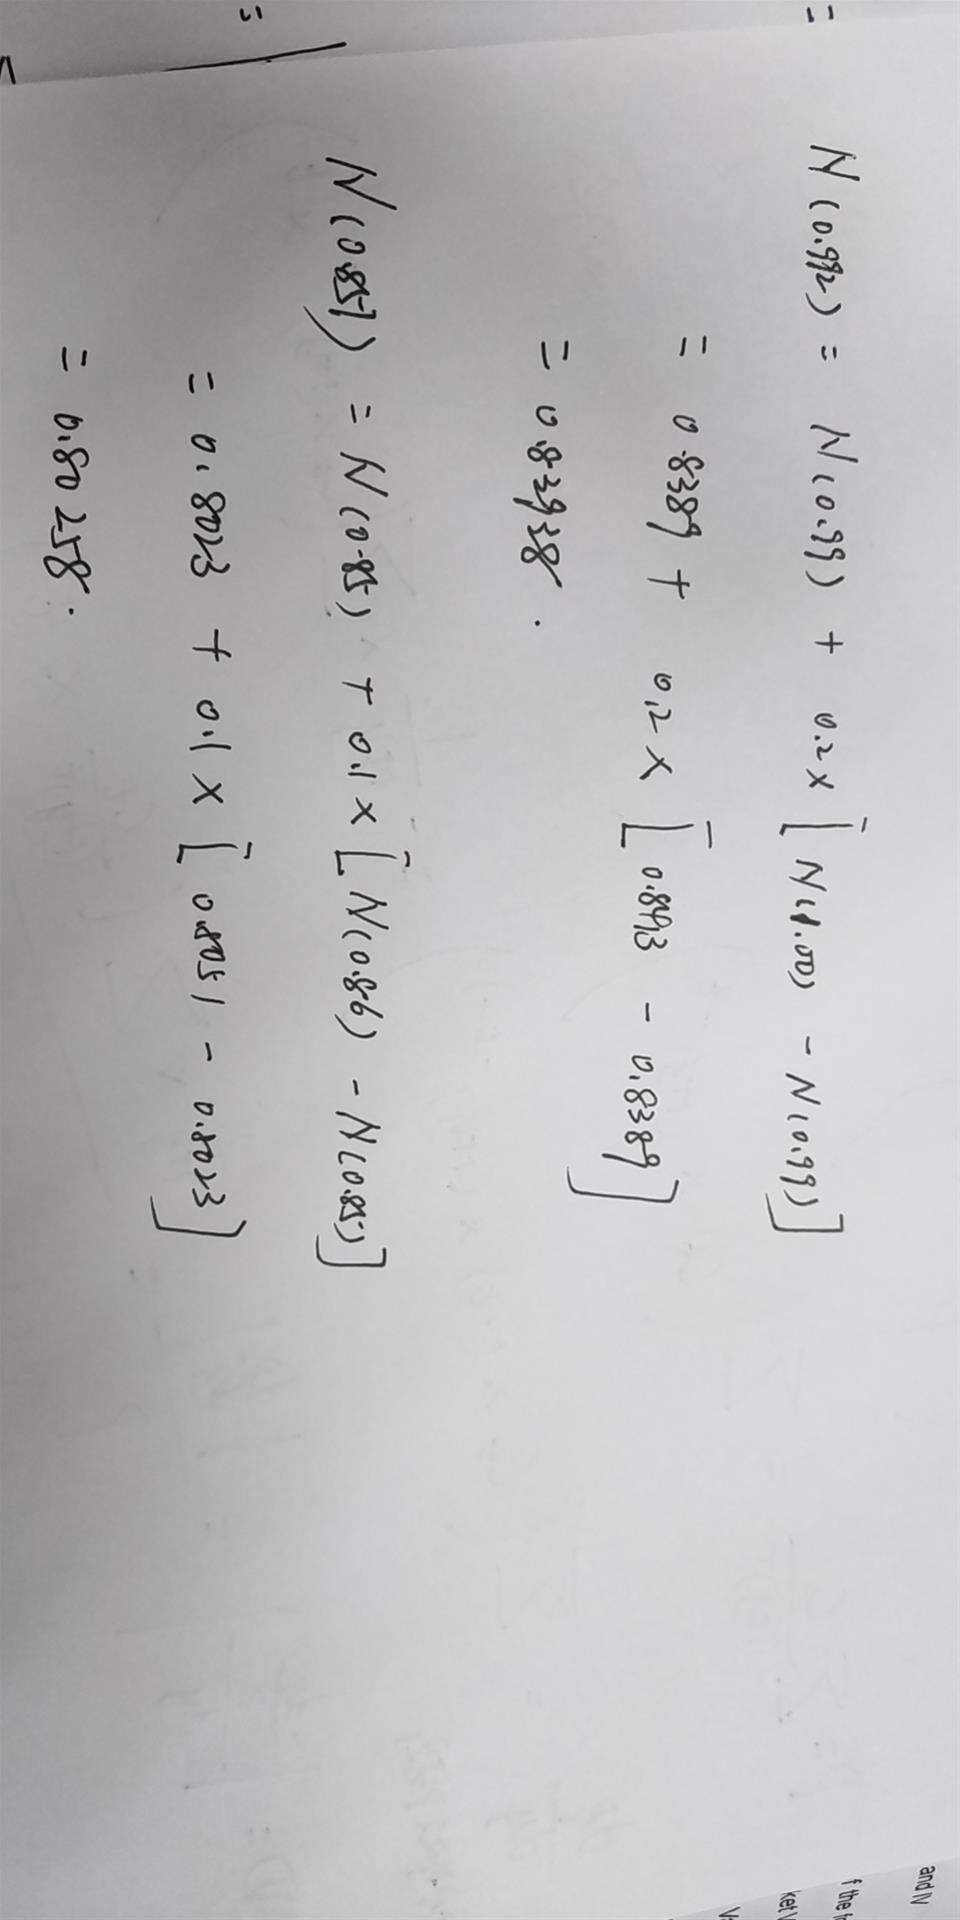 N(0.992) = N(0.99) + 0.2 × [N(1.00) - N(0.99)]
= 0.8389 + 0.2 × [0.8413 - 0.8389]
= 0.83938.
N(0.851) = N(0.85) + 0.1 × [N(0.86) - N(0.85)]
= 0.8023 + 0.1 × [0.8051 - 0.8023]
= 0.80258.
and IV
f the
ket